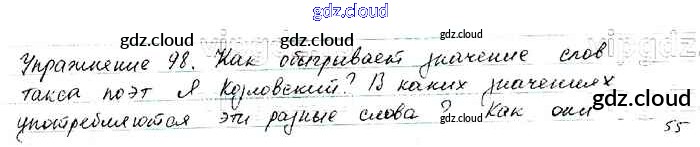 gdz.cloud
gdz.cloud gdz.cloud
Упражнение 98. Как обыгрывает значение слов
такса поэт Я Козловский? В каких значениях
gdz.cloud gdz.cloud gdz.cloud
употребляются эти разные слова? Как они
55